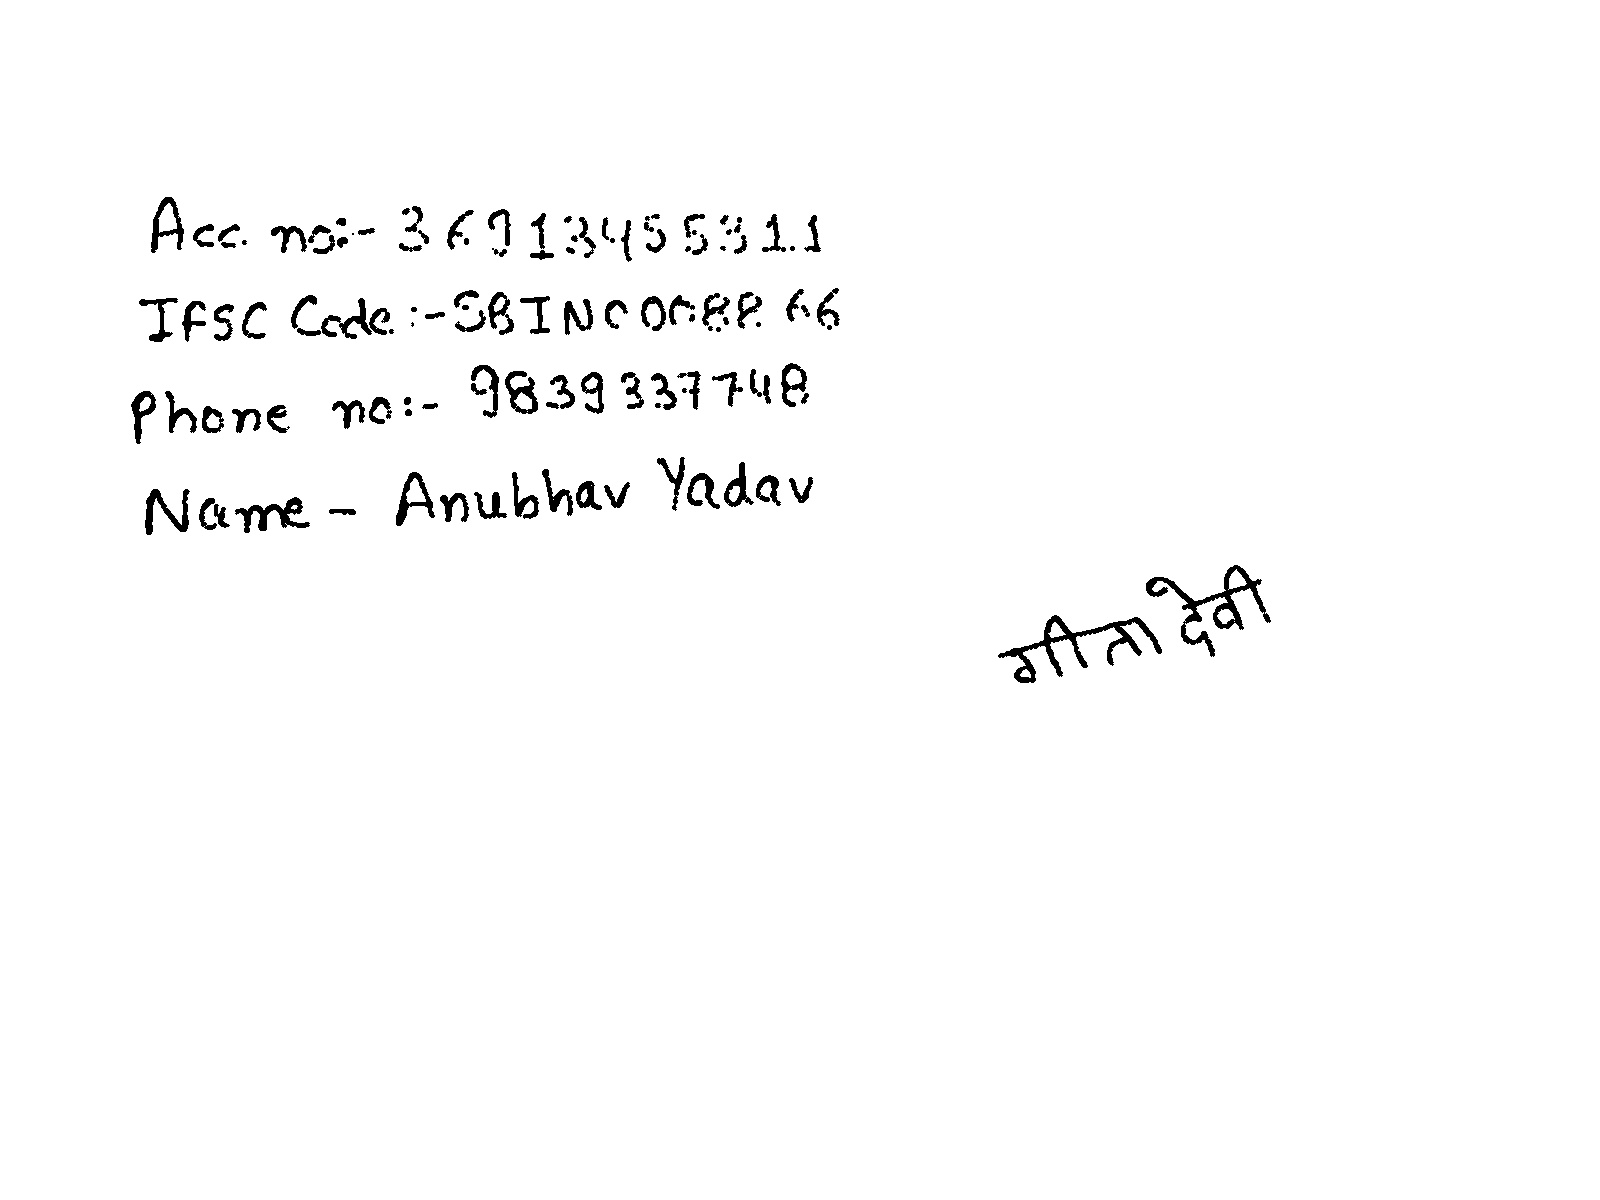 Acc no:- 36913455311
IFSC Code:- SBIN0008866
Phone no:- 9839337748
Name - Anubhav Yadav
गीता देवी